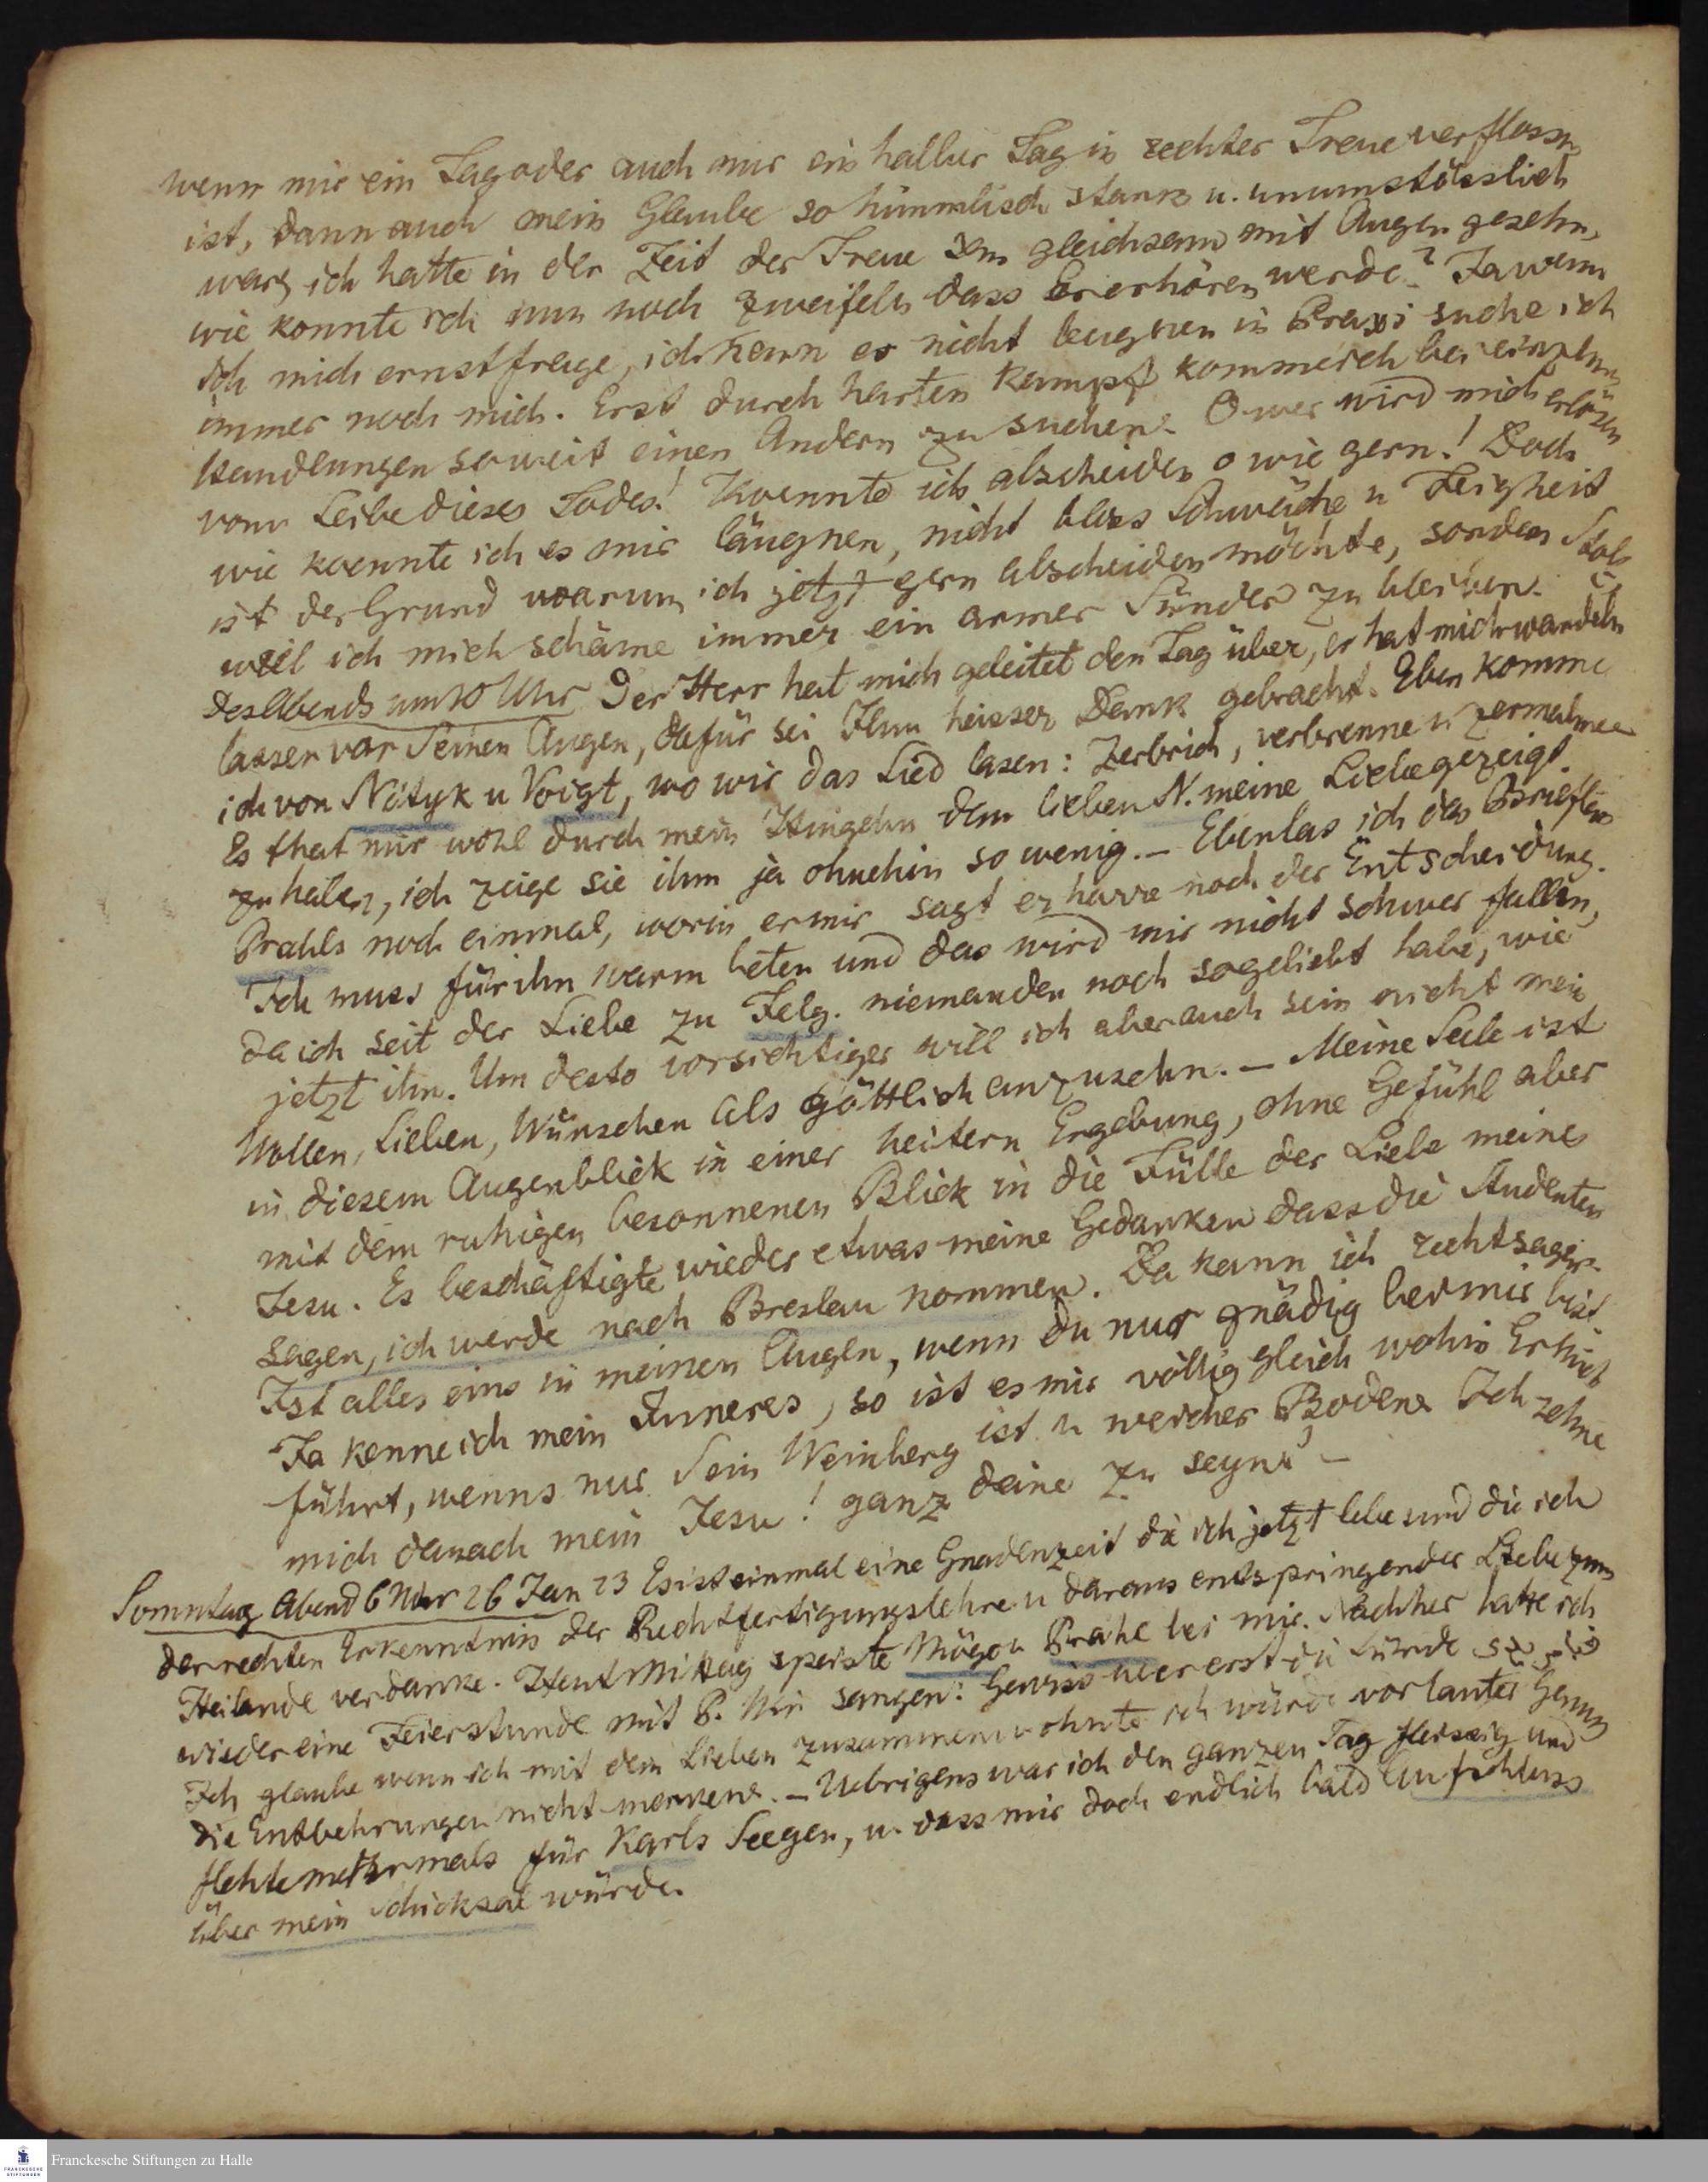 wenn mir ein Tag oder auch nur ein halber Tag in rechter Treue verflossn
ist, dann auch mein Glaube so himmlisch stark u. unumstösslich
war, ich hatte in der Zeit der Treue ihn gleichsam mit Augen gesehn,
wie konnte ich nun noch zweifeln dass Er erhören werde? Ja wenn
ich mich ernst frage, ich kann es nicht leugnen in Praxi suche ich
immer noch mich. Erst durch harten Kampf komme ich bei einzelnen
Handlungen soweit einen Andern zu suchen. O wer wird mich erlösen
vom Leibe dieses Todes! Koennte ich abscheiden o wie gern! Doch
wie koennte ich es mir läugnen, nicht bloss Schwäche u Feigheit
ist der Grund warum ich jetzt gern abscheiden möchte, sondern Stolz
weil ich mich schäme immer ein armer Sünder zu bleiben.
Des Abends um 10 Uhr Der Herr hat mich geleitet den Tag über, er hat mich wandeln
lassen vor Seinen Augen, dafür sei Ihm heisser Dank gebracht. Eben komme
ich von Nötyk u Voigt, wo wir das Lied lasen: Zerbrich, verbrenne u zermalme
Es that mir wohl durch mein Hingehn dem lieben N. meine Liebe gezeigt
zu haben, ich zeige sie ihm ja ohnehin so wenig. – Eben las ich das Brieflein
Prahls noch einmal, worin er mir sagt er harre noch der Entscheidung.
Ich muss für ihn warm beten und das wird mir nicht schwer fallen,
da ich seit der Liebe zu Felg. niemanden noch so geliebt habe, wie
jetzt ihn. Um desto vorsichtiger will ich aber auch sein nicht mein
Wollen, Lieben, Wünschen als göttlich anzusehn. – Meine Seele ist
in diesem Augenblick in einer heitern Ergebung, ohne Gefühl aber
mit dem ruhigen besonnenen Blick in die Fülle der Liebe meines
Jesu. Es beschäftigte wieder etwas meine Gedanken dass die Studenten
sagen, ich werde nach Breslau kommen. Da kann ich recht sagen
Ist alles eins in meinen Augen, wenn du nur gnädig bei mir bist.
Ja kenne ich mein Inneres, so ist es mir völlig gleich wohin Er mich
führt, wenns nur Sein Weinberg ist u weicher Boden. Ich sehne
mich danach mein Jesu! ganz deine zu seyn! –
Sonntag Abend 6 Uhr 26 Jan 23 Es ist einmal eine Gnadenzeit die ich jetzt lebe und die ich
der rechten Erkenntnis der Rechtfertigungslehre u daraus entspringender Liebe zum
Heilande verdanke. Heut Mittag speiste Mögo u Prahl bei mir. Nachher hatte ich
wieder eine Feierstunde mit P. Wir sangen: Gewiss wer erst die Sünde
Ich glaube wenn ich mit dem Lieben zusammenwohnte ich würde vor lauter Genuss
die Entbehrungen nicht merken. – Uebrigens war ich den ganzen Tag fleissig und
flehte mehrmals für Karls Seegen, u. dass mir doch endlich bald Aufschluss
über mein Schicksal würde.
Franckesche Stiftungen zu Halle
FRANCKESCHE
STIFTUNGEN